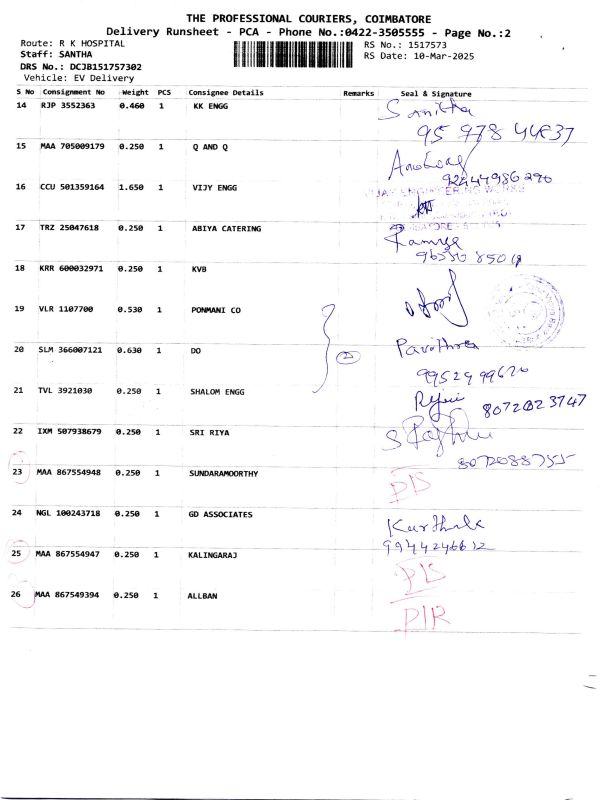 THE PROFESSIONAL COURIERS, COIMBATORE
Delivery Runsheet - PCA - Phone No.:0422-3505555 - Page No.:2
Route: R K HOSPITAL
RS No.: 1517573
Staff: SANTHA
RS Date: 10-Mar-2025
DRS No.: DCJB151757302
Vehicle: EV Delivery
S No Consignment No Weight PCS Consignee Details Remarks Seal & Signature
14 RJP 3552363 0.460 1 KK ENGG
15 MAA 705009179 0.250 1 Q AND Q
16 CCU 501359164 1.650 1 VIJY ENGG
VIJAY ENGINEERING WORKS
17 TRZ 25047618 0.250 1 ABIYA CATERING
18 KRR 600032971 0.250 1 KVB
19 VLR 1107700 0.530 1 PONMANI CO
20 SLM 366007121 0.630 1 DO
Pavithra
21 TVL 3921030 0.250 1 SHALOM ENGG
22 IXM 507938679 0.250 1 SRI RIYA
8072088755
23 MAA 867554948 0.250 1 SUNDARAMOORTHY
24 NGL 100243718 0.250 1 GD ASSOCIATES
9944246612
25 MAA 867554947 0.250 1 KALINGARAJ
26 MAA 867549394 0.250 1 ALLBAN